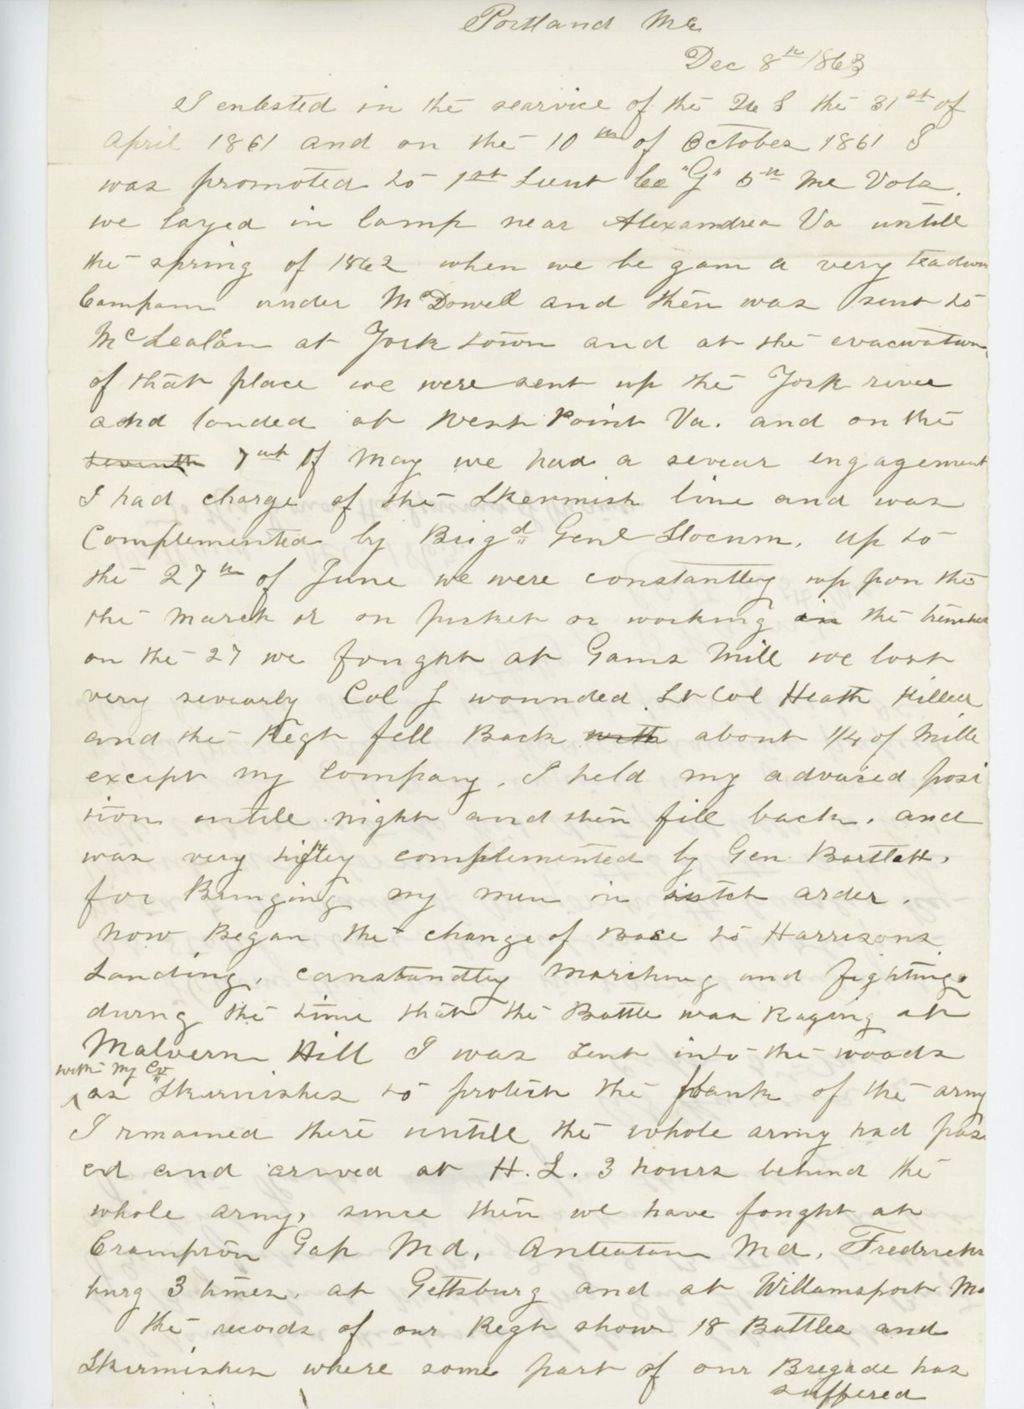 Portland Me
Dec 8th 1863
I enlested in the searvice of the U S the 31st of
April 1861 and on the 10th of October 1861 I
was promoted to 1st Lieut Co "G" 5th Me Vols.
we layed in Camp near Alexandrea Va untill
the spring of 1862 when we be gam a very
Campam under McDowell and then was sent to
McLealan at York town and at the evacuation
of that place we were sent up the York river
and landed at West Point Va. and on the
seventh 7th of May we had a sevear engagement
I had charge of the Skermish line and was
Complemented by Brigd Genl Slocum. up to
the 27th of June we were constantley up pon the
the march or on picket or working in the
on the 27 we fought at Gains Mill we lost
very sevearly Col J wounded. Lt Col Heath Killed
and the Regt fell Back with about 1/4 of Mille
except my Company. I held my advaced posi
tion untill night and then fell back. and
was very highley complemented by Gen Bartlett.
for Bringing my men in order.
Now Began the change of Base to Harrisons
Landing. constandtley marching and fighting.
durng the time that the Battle was Raging at
Malvern Hill I was sent into the woods
with my Co
as Skirmishes to protect the flank of the army
I rmained there untill the whole army had pas
ed and arived at H. L. 3 hours behind the
whole army, since then we have fought at
Crampton Gap Md. Anteatam Md. Fredricks
burg 3 times. at Gettsburg and at Willamsport Md
the records of our Regt show 18 Battles and
Skirmishes where some part of our Bregade has
suffered